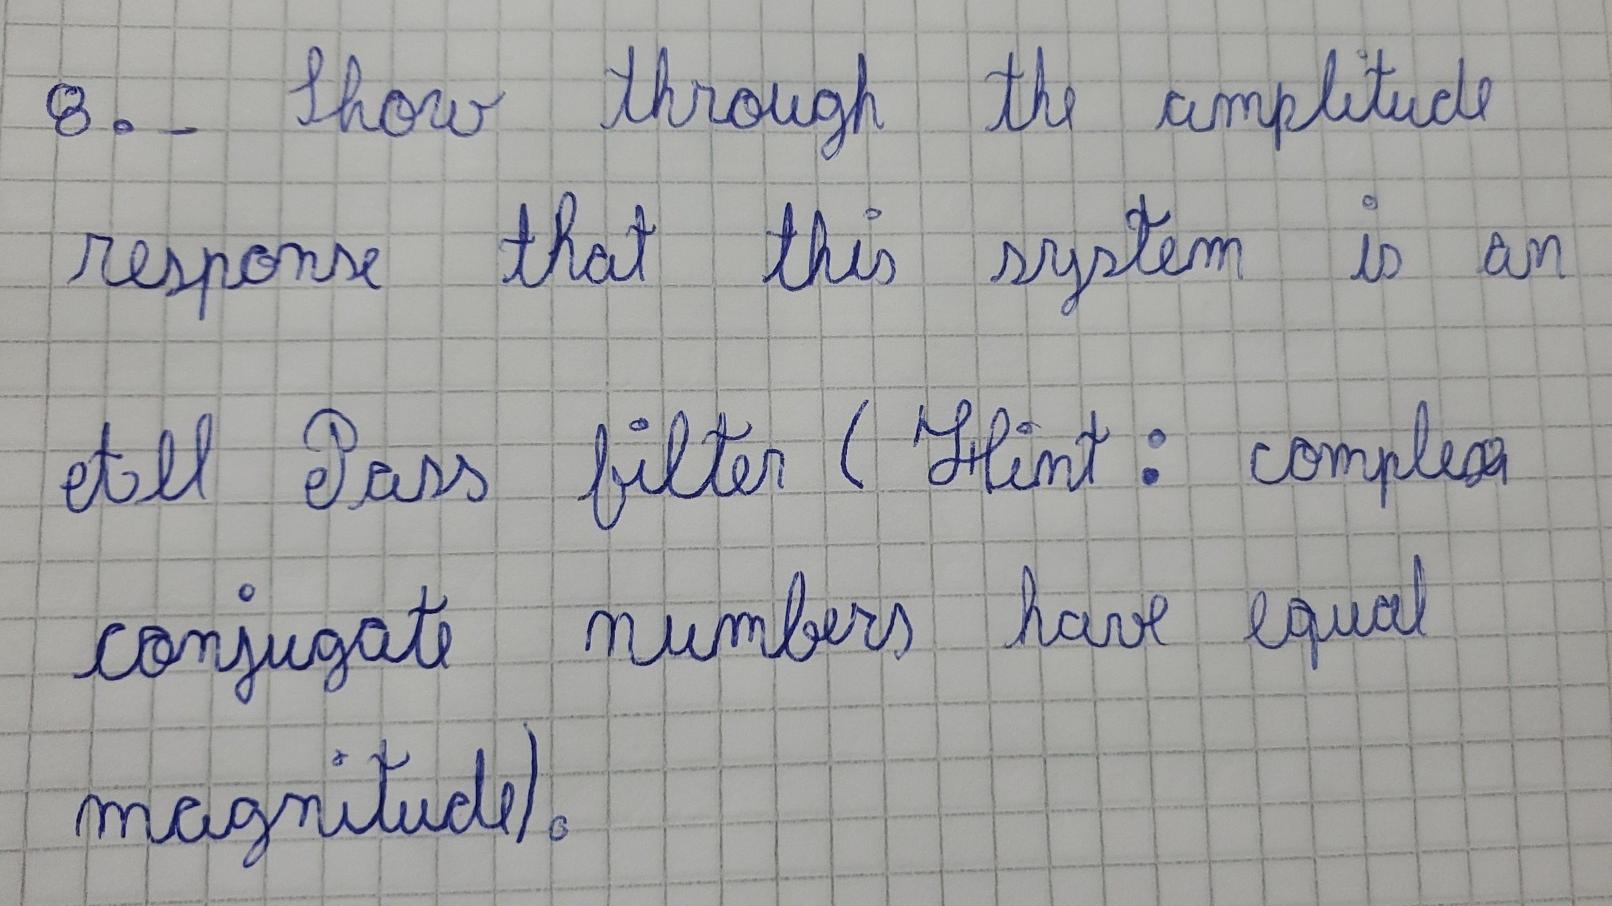 8.- Show through the amplitude
response that this system is an
All Pass filter (Hint: complex
conjugate numbers have equal
magnitude).